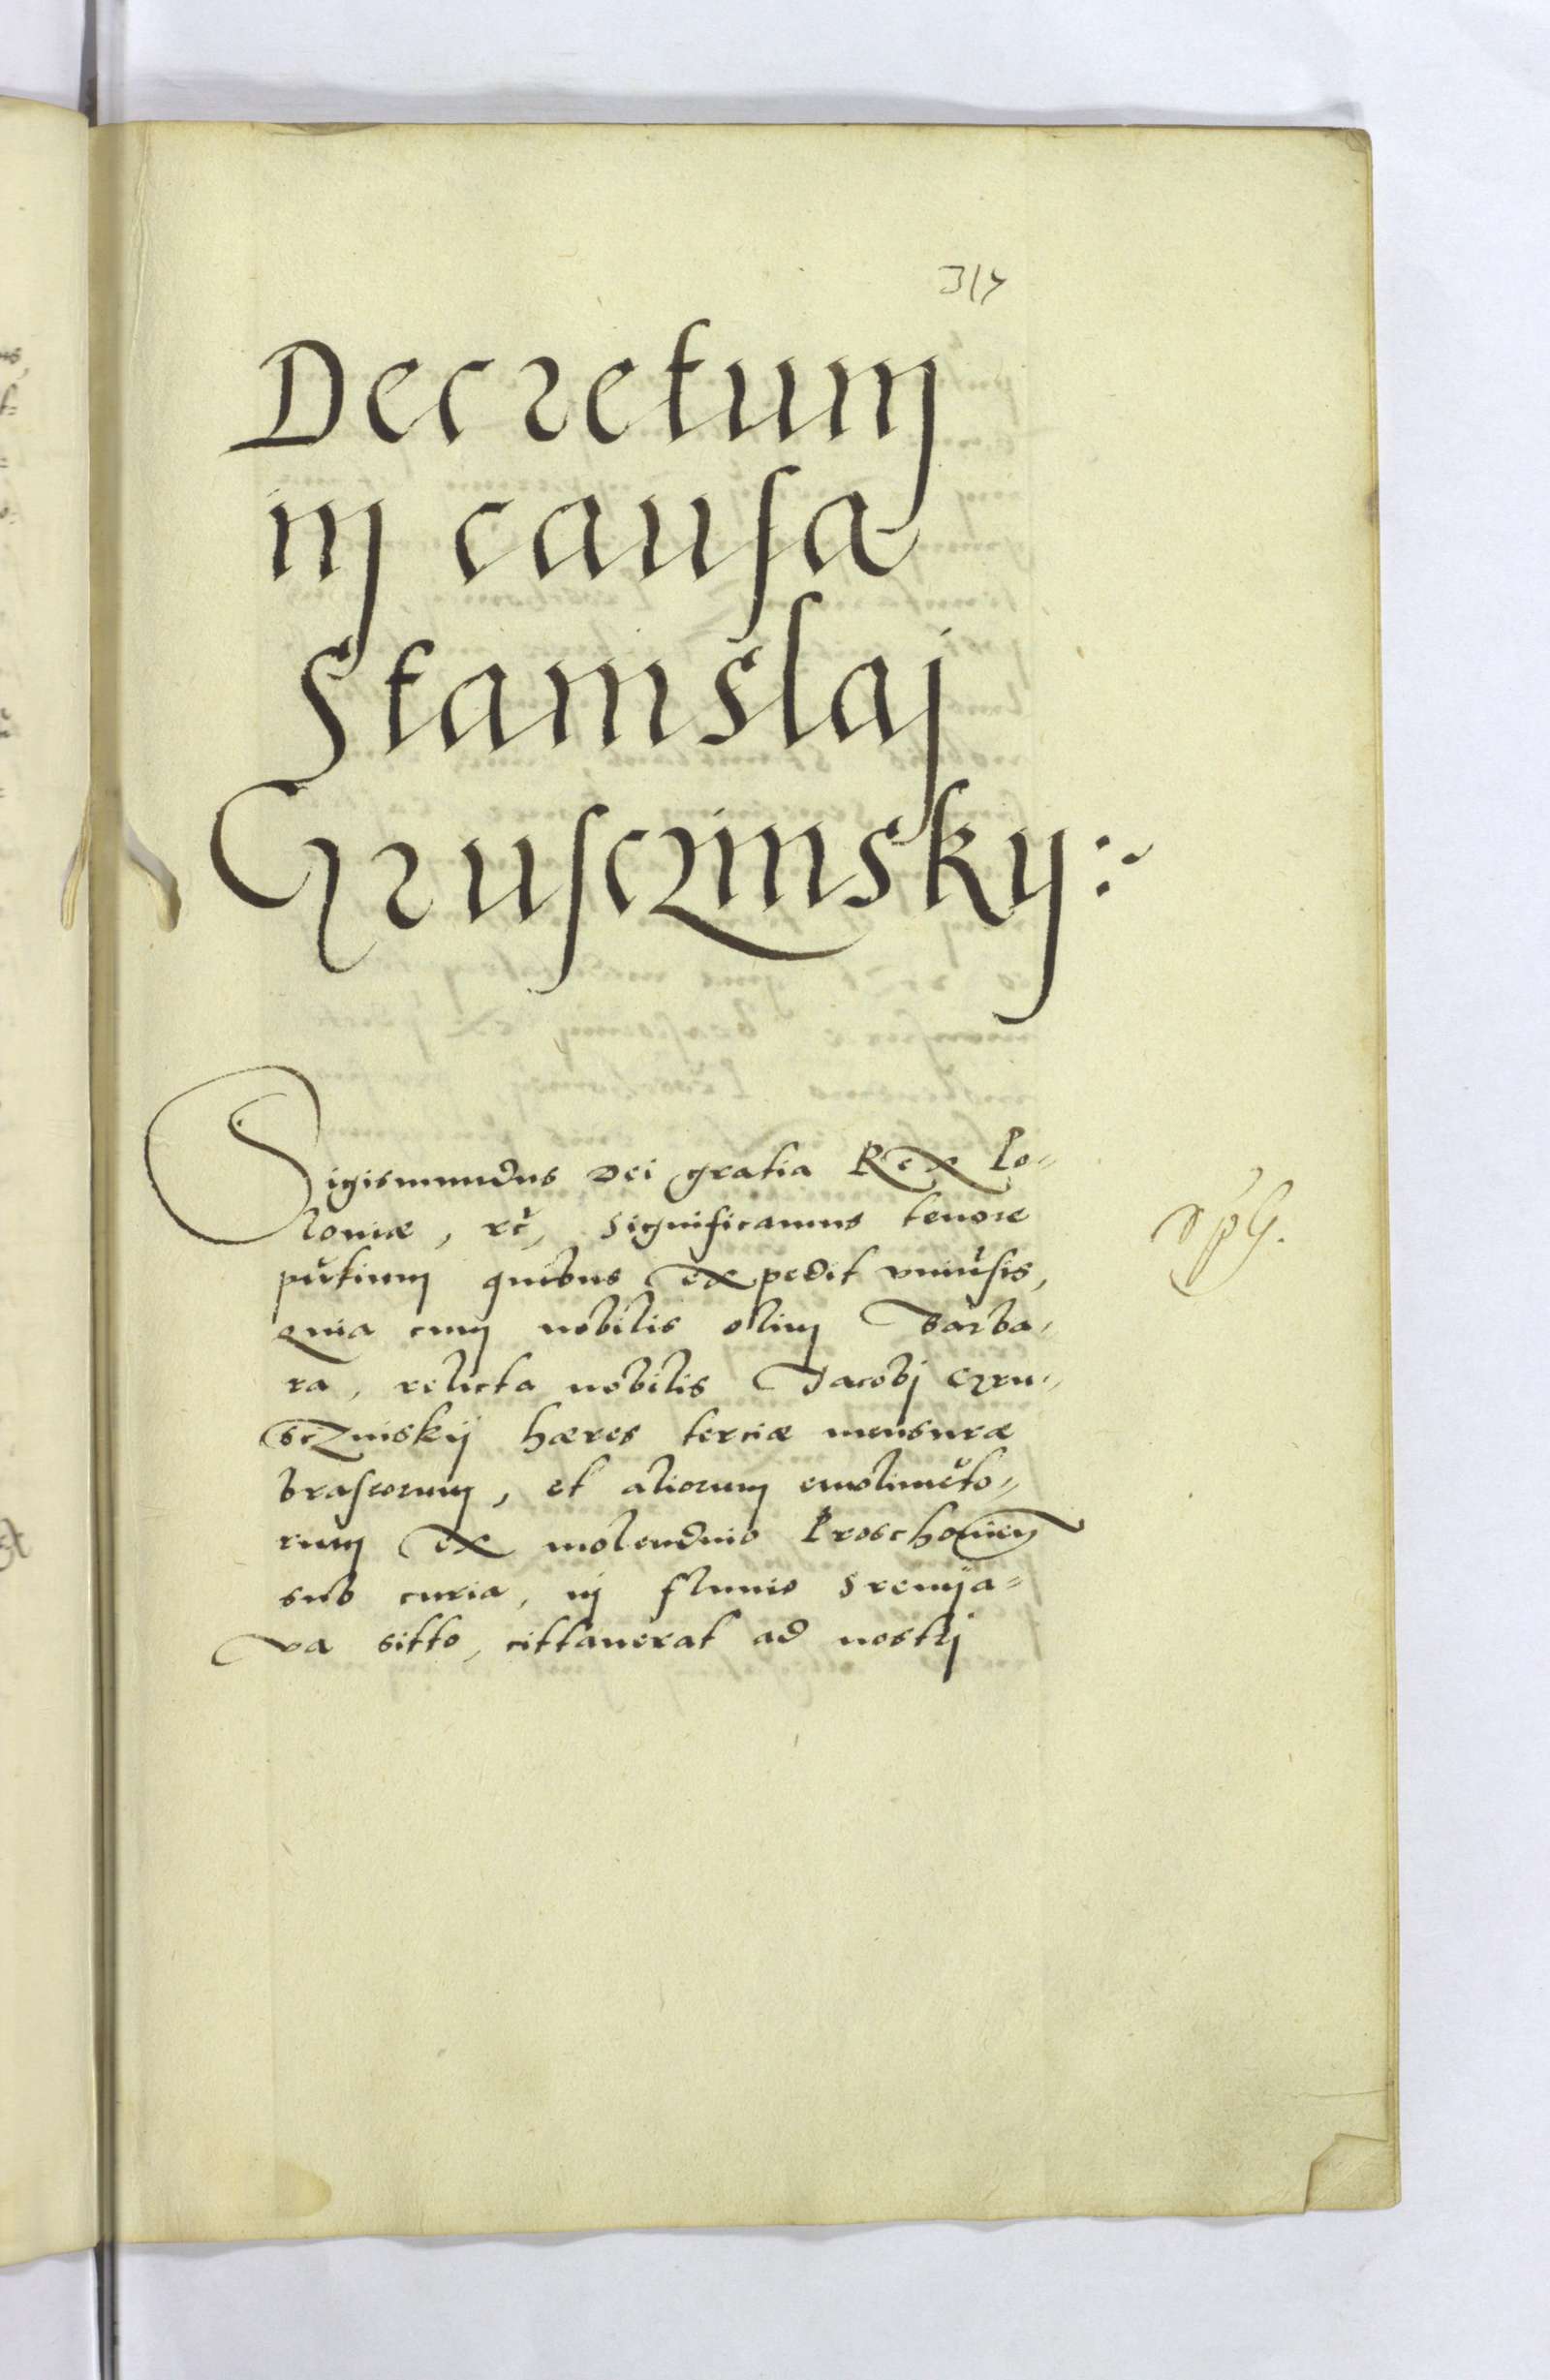 317
Decretum
in causa
Stanislaj
Gruscżinsky:
Sigismundus Dei gratia Rex Po=
loniæ, etc̃, Significamus tenore
pñtium quibus expedit vniũsis,
quia cum nobilis olim Barba=
ra, relicta nobilis Jacobj Gru=
sczinskÿ hæres terciæ mensuræ
braseorum, et aliorum emolimẽto=
rum ex molendino Proschouien
sub curia, in fluuio Srenÿa=
va sitto, cittauerat ad nostrj